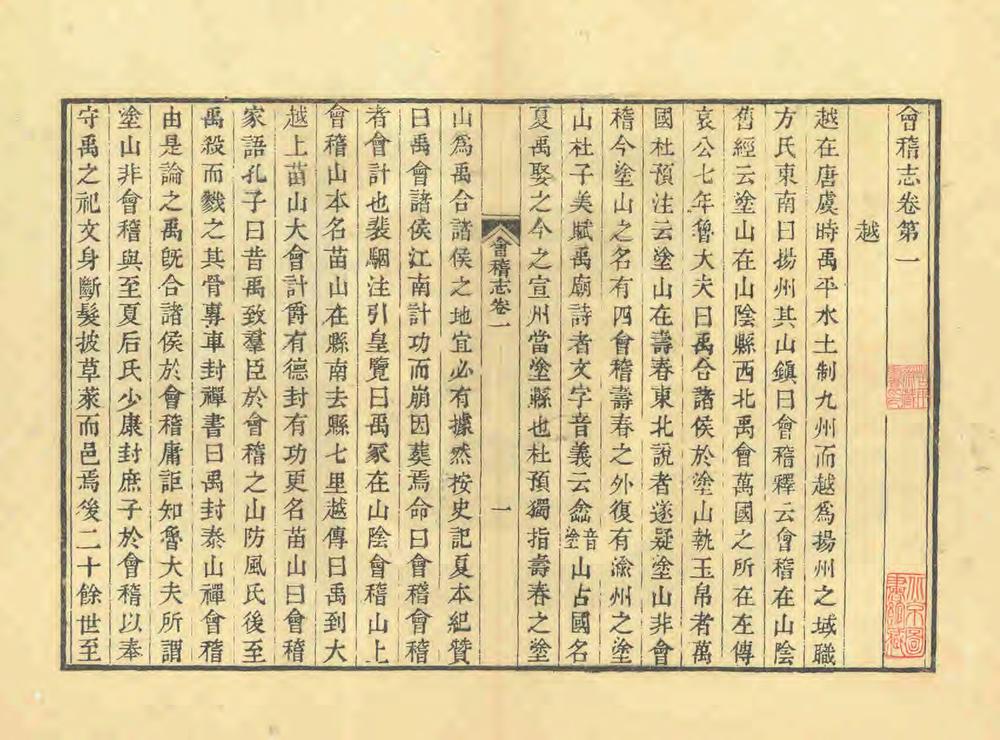 會稽志卷第一
越
越在唐虞時禹平水土制九州而越爲揚州之域職
方氏東南曰揚州其山鎮曰會稽釋云會稽在山陰
舊經云塗山在山陰縣西北禹會萬國之所在左傳
哀公七年魯大夫曰禹合諸侯於塗山執玉帛者萬
國杜預注云塗山在壽春東北說者遂疑塗山非會
稽今塗山之名有四會稽壽春之外復有渝州之塗
山杜子美賦禹廟詩者文字音義云嵞音塗山古國名
夏禹娶之今之宣州當塗縣也杜預獨指壽春之塗
會稽志卷一
一
山爲禹合諸侯之地宜必有據然按史記夏本紀贊
曰禹會諸侯江南計功而崩因葬焉命曰會稽會稽
者會計也裴駰注引皇覽曰禹冢在山陰會稽山上
會稽山本名苗山在縣南去縣七里越傳曰禹到大
越上苗山大會計爵有德封有功更名苗山曰會稽
家語孔子曰昔禹致羣臣於會稽之山防風氏後至
禹殺而戮之其骨專車封禪書曰禹封泰山禪會稽
由是論之禹旣合諸侯於會稽庸詎知魯大夫所謂
塗山非會稽與至夏后氏少康封庶子於會稽以奉
守禹之祀文身斷髮披草萊而邑焉後二十餘世至